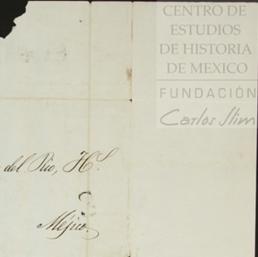 CENTRO DE
ESTUDIOS
DE HISTORIA
DE MEXICO
FUNDACIÓN
Carlos Slim
del Rio, H.
Méjico.